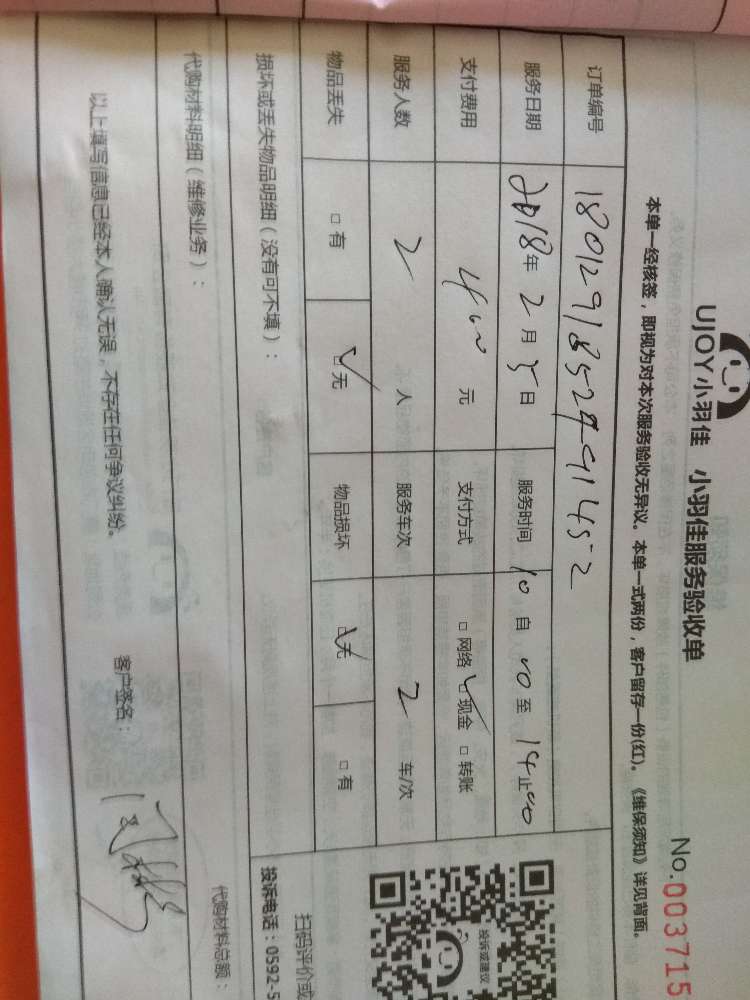 UJOY小羽佳 小羽佳服务验收单
No.003715
本单一经核签，即视为对本次服务验收无异议。本单一式两份，客户留存一份(红)。《维保须知》详见背面。
订单编号
服务日期 2018年 2月 5日 服务时间 10 自 00 至 14 止 00
支付费用 400 元 支付方式 □网络 ☑现金 □转账
服务人数 2 人 服务车次 2 车/次
物品丢失 □有 ☑无 物品损坏 ☑无 □有
损坏或丢失物品明细（没有可不填）：
投诉或建议
扫码评价或
投诉电话：0592-5
代购材料明细（维修业务）：
代购材料总额：
以上填写信息已经本人确认无误，不存在任何争议纠纷。
客户签名：